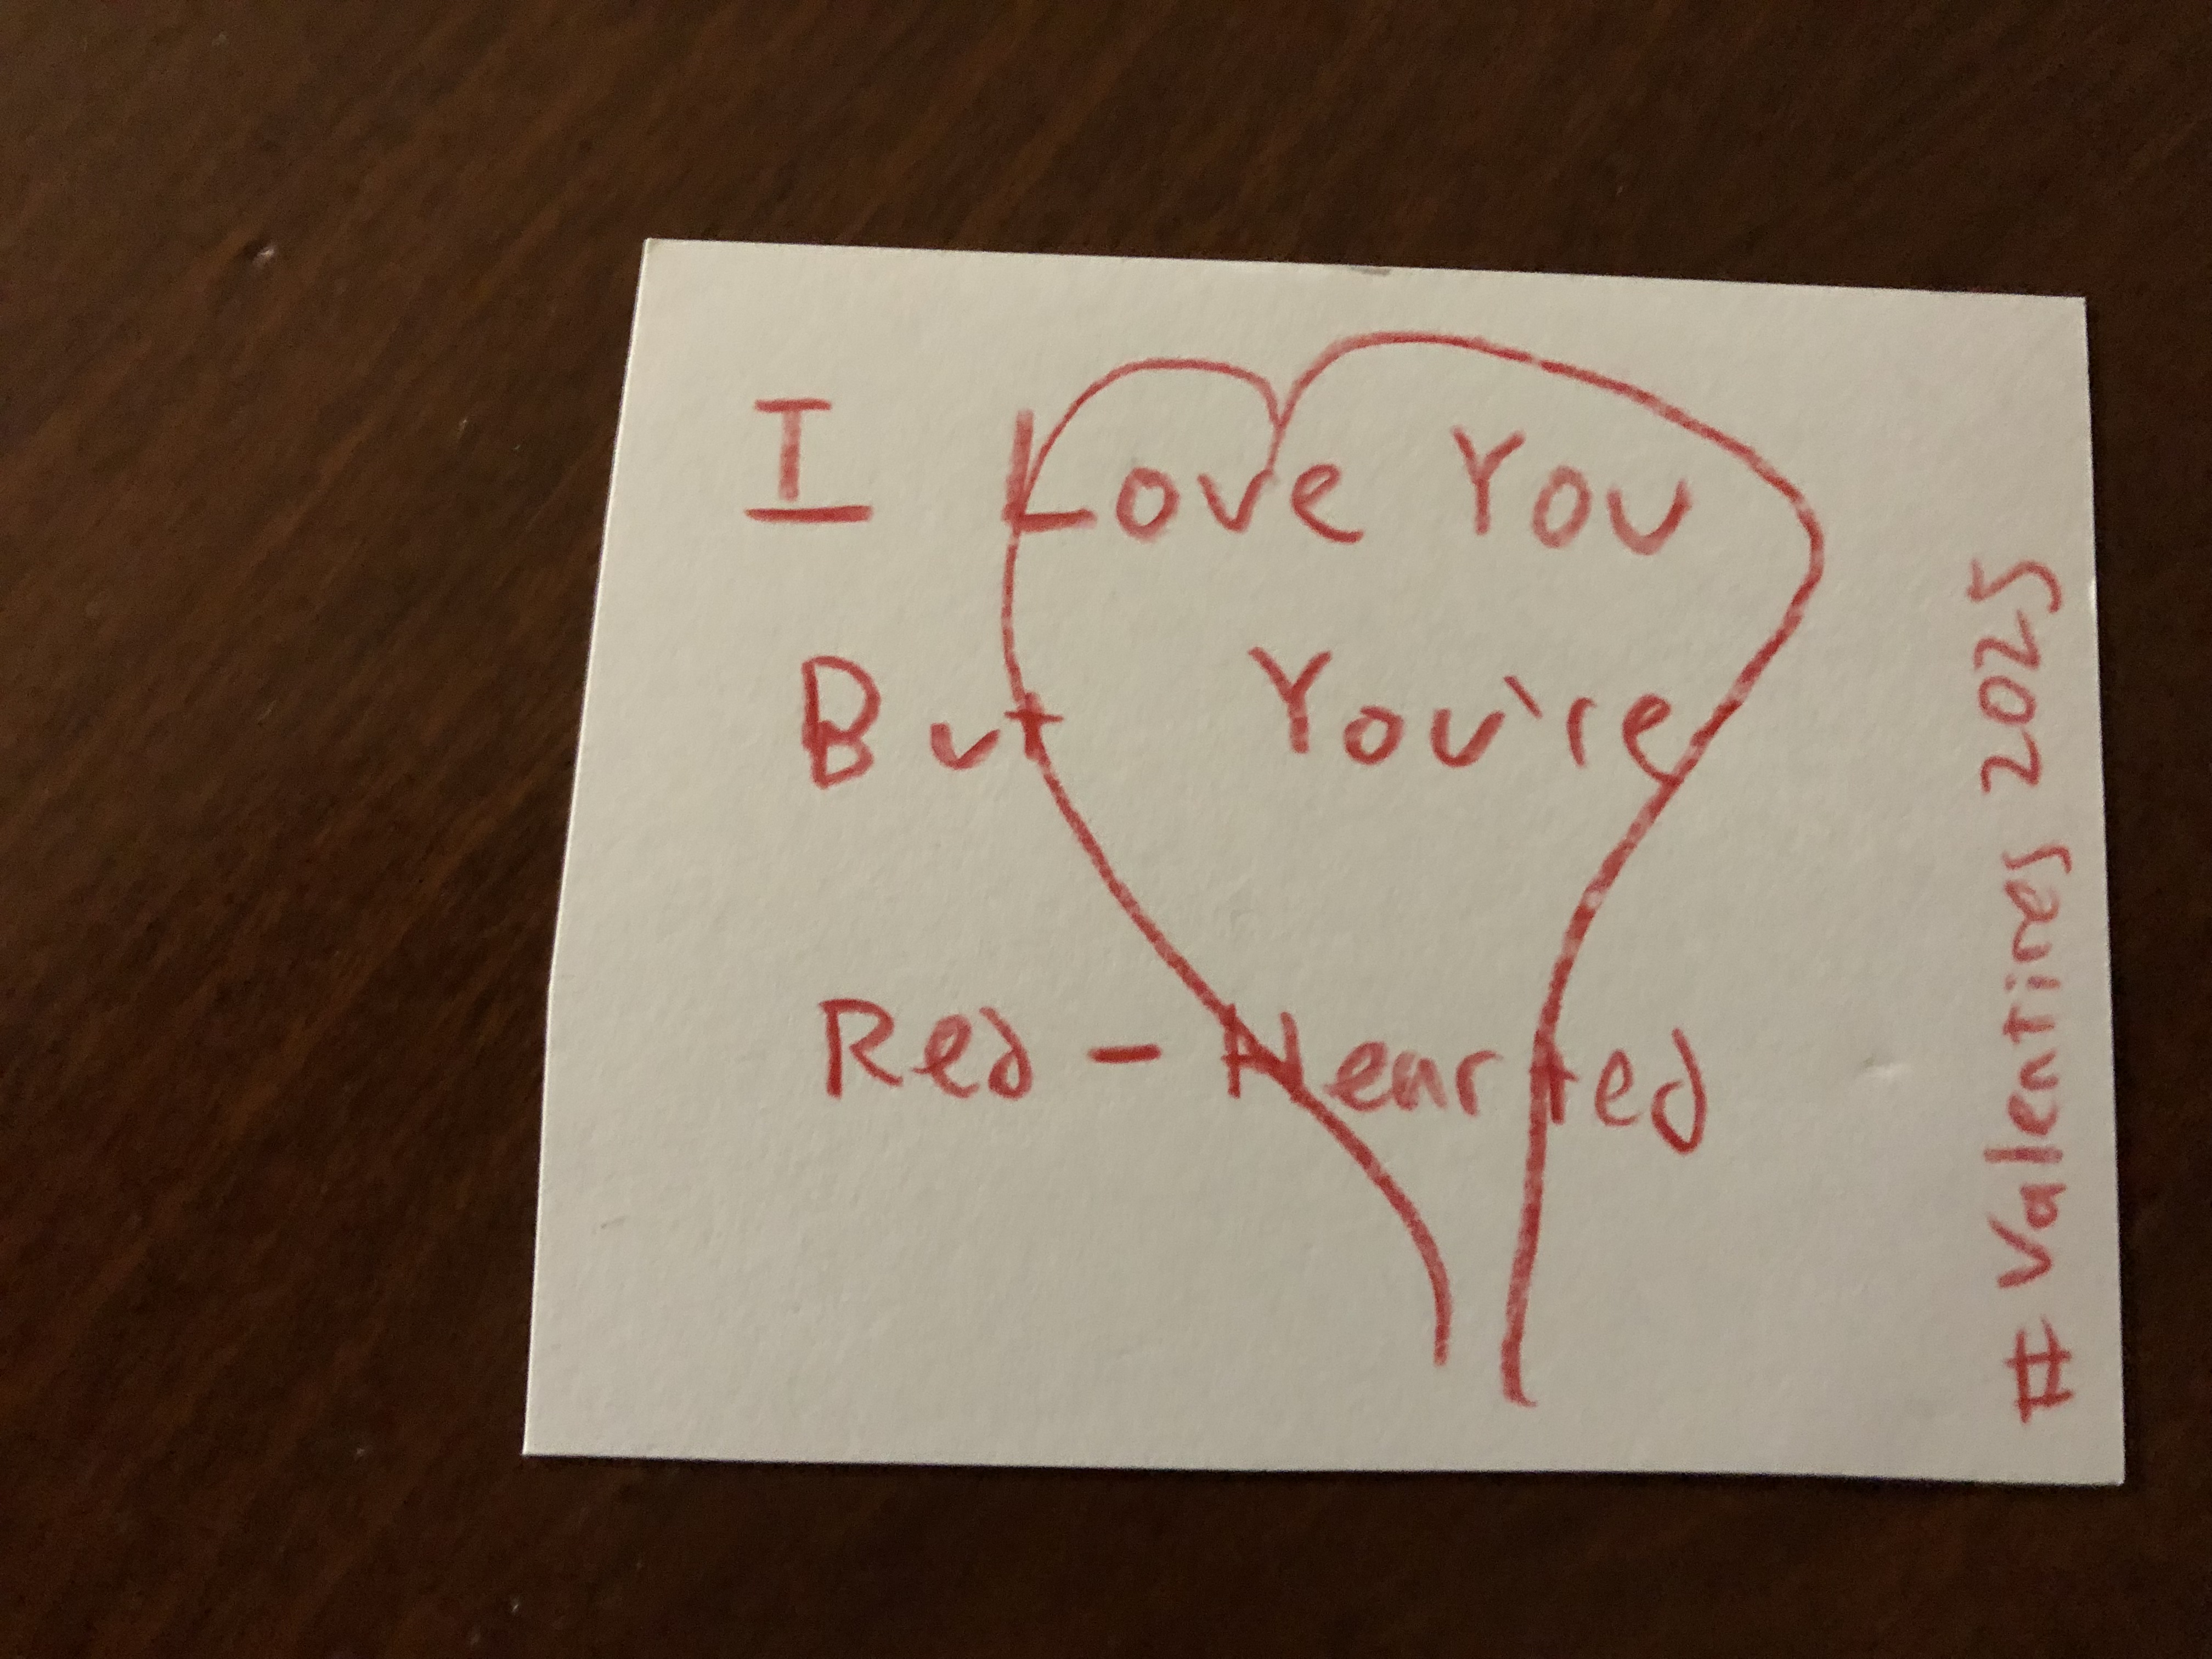 I Love You
But You're
Red - Hearted
# Valentines 2025